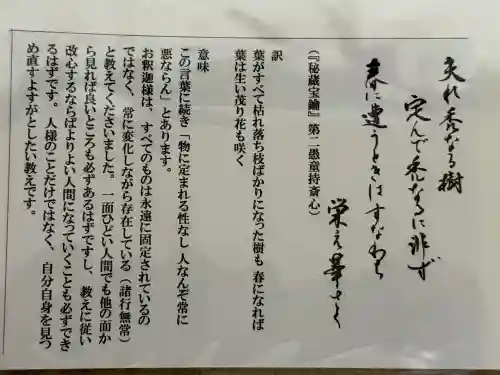 夫れ禿なる樹
定んで禿なるに非ず
春に遇うときはすなわち
栄え華さく
(『秘蔵宝鑰』第二愚童持斎心)
訳
葉がすべて枯れ落ち枝ばかりになった樹も 春になれば
葉は生い茂り花も咲く
意味
この言葉に続き「物に定まれる性なし 人なんぞ常に
悪ならん」とあります。
お釈迦様は、すべてのものは永遠に固定されているの
ではなく、常に変化しながら存在している(諸行無常)
と教えてくださいました。一面ひどい人間でも他の面か
ら見れば良いところも必ずあるはずですし、教えに従い
改心するならばよりよい人間になっていくことも必ずでき
るはずです。人様のことだけではなく、自分自身を見つ
め直すよすがとしたい教えです。